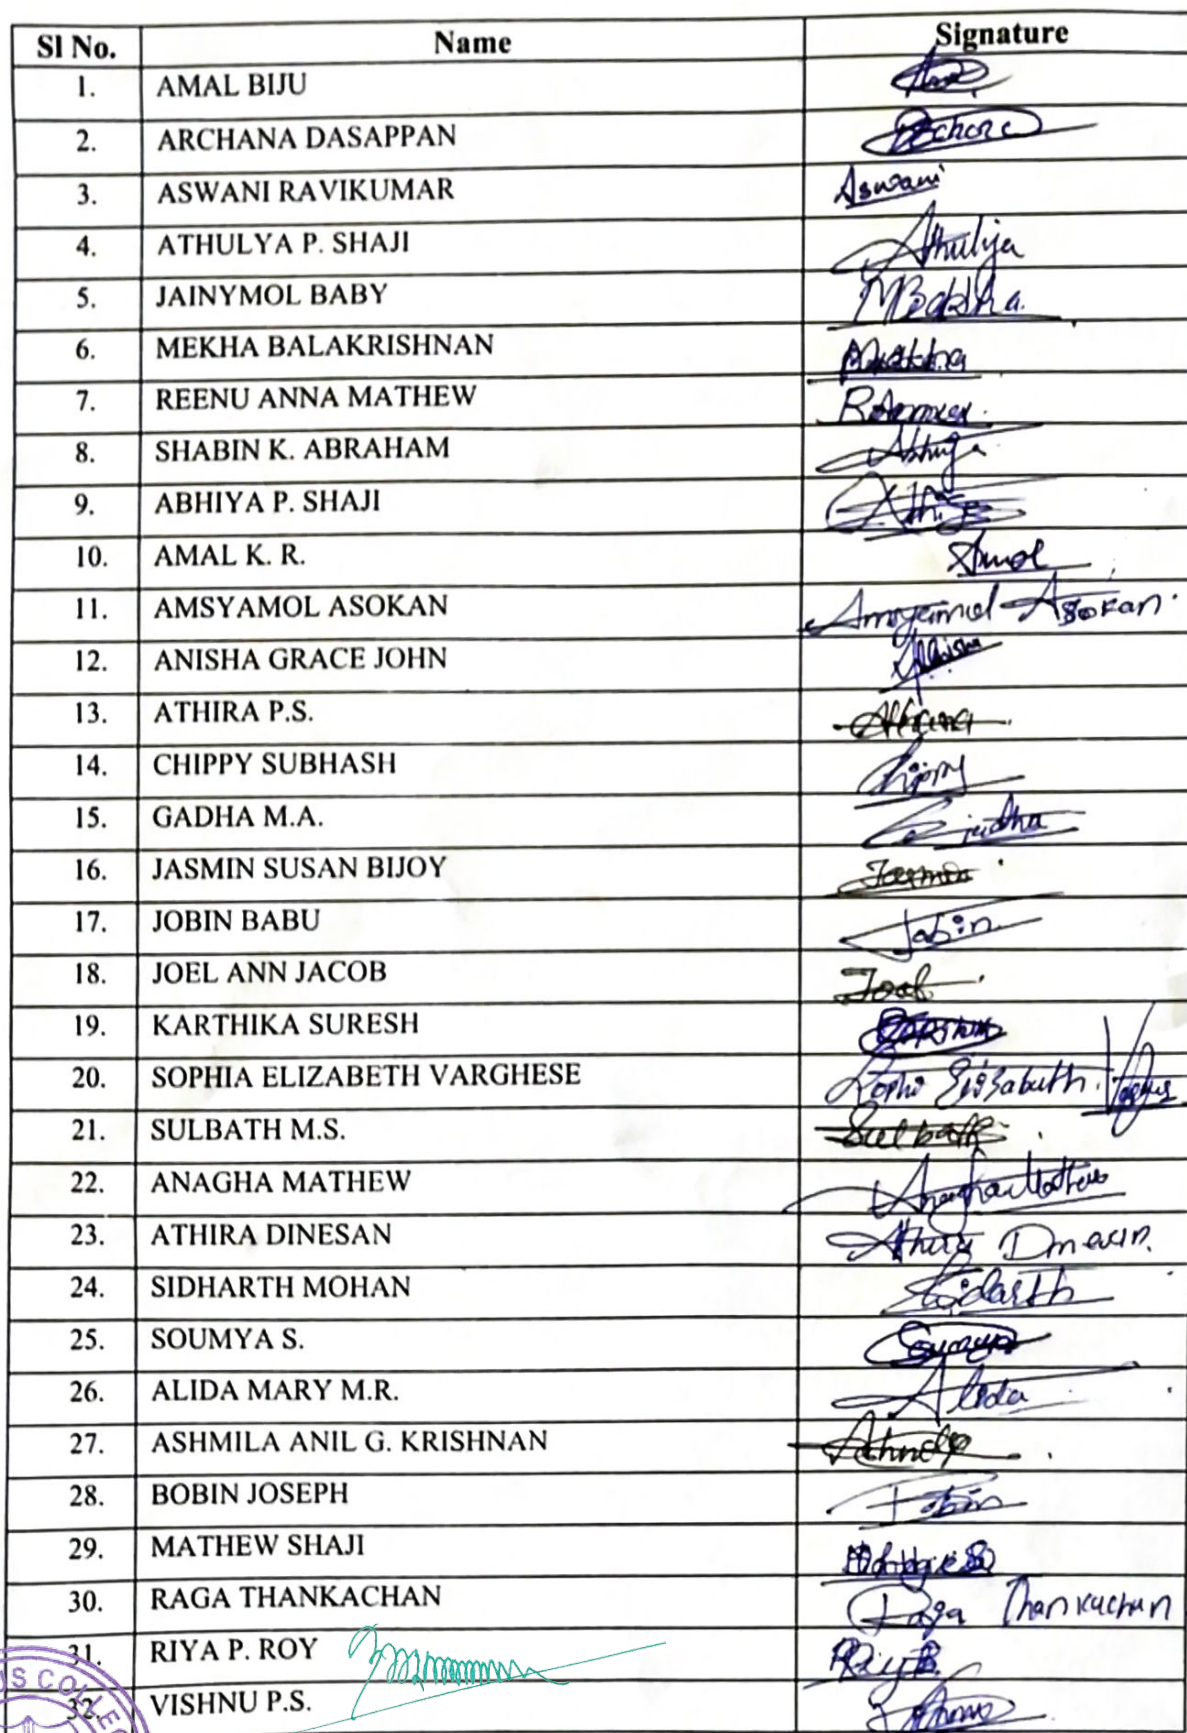 Sl No. Name Signature
1. AMAL BIJU
2. ARCHANA DASAPPAN
3. ASWANI RAVIKUMAR Aswani
4. ATHULYA P. SHAJI Athulya
5. JAINYMOL BABY
6. MEKHA BALAKRISHNAN
7. REENU ANNA MATHEW
8. SHABIN K. ABRAHAM
9. ABHIYA P. SHAJI
10. AMAL K. R. Amal
11. AMSYAMOL ASOKAN Amsyamol Asokan
12. ANISHA GRACE JOHN
13. ATHIRA P.S.
14. CHIPPY SUBHASH
15. GADHA M.A.
16. JASMIN SUSAN BIJOY Jasmin
17. JOBIN BABU Jobin
18. JOEL ANN JACOB Joel
19. KARTHIKA SURESH
20. SOPHIA ELIZABETH VARGHESE
21. SULBATH M.S. Sulbath
22. ANAGHA MATHEW Anagha Mathew
23. ATHIRA DINESAN
24. SIDHARTH MOHAN Sidarth
25. SOUMYA S. Soumya
26. ALIDA MARY M.R. Alida
27. ASHMILA ANIL G. KRISHNAN
28. BOBIN JOSEPH Bobin
29. MATHEW SHAJI
30. RAGA THANKACHAN Raga Thankachan
31. RIYA P. ROY
32. VISHNU P.S.
US COLLEG